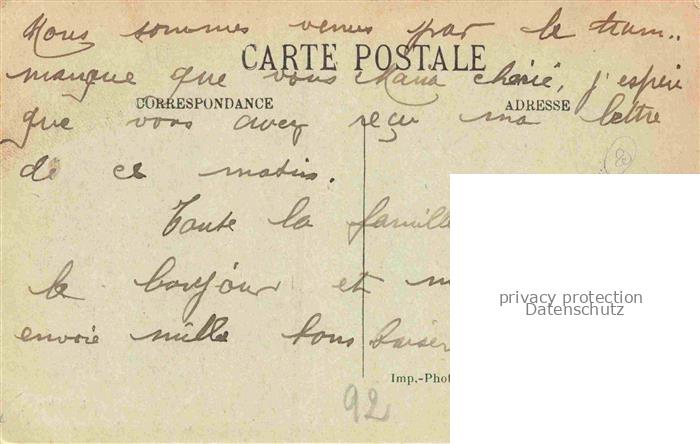 Nous sommes venus par le tram..
CARTE POSTALE
manque que vous Mama cherie, j'espère
CORRESPONDANCE
ADRESSE
que vous avez reçu ma lettre
de ce matin.
Toute la famille
le bonjour et
envoie mille bons baiser
privacy protection
Datenschutz
Imp.-Phot
92